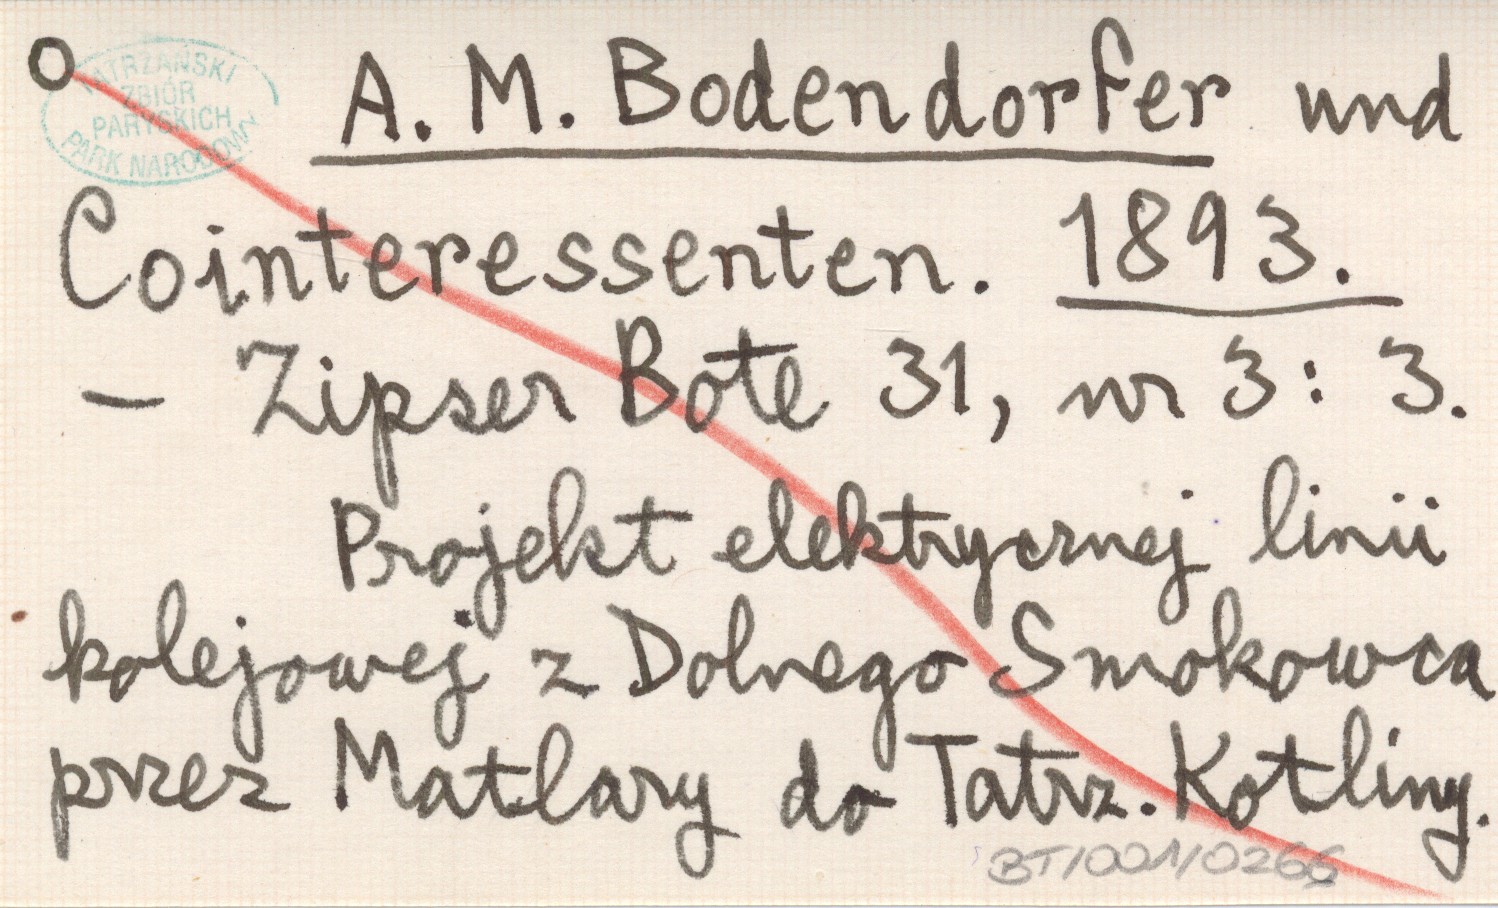 TATRZAŃSKI
ZBIÓR
PARYSKICH
PARK NARODOWY
A. M. Bodendorfer und
Cointeressenten. 1893.
— Zipser Bote 31, nr 3: 3.
Projekt elektrycznej linii
kolejowej z Dolnego Smokowca
przez Matlary do Tatrz. Kotliny.
BT/001/0266